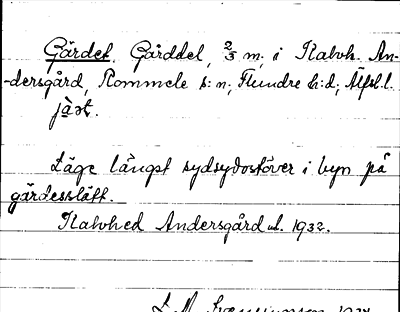 Gärdet. Gårddel, 2/3 m. i Kalvh. An-
-dersgård, Rommele s:n; Flundre h:d; Älfsb.l.
jä̀ʒt.
Läge längst sydsydostöver i byn på
gärdesslätt.
Kalvhed Andersgård ul. 1932.